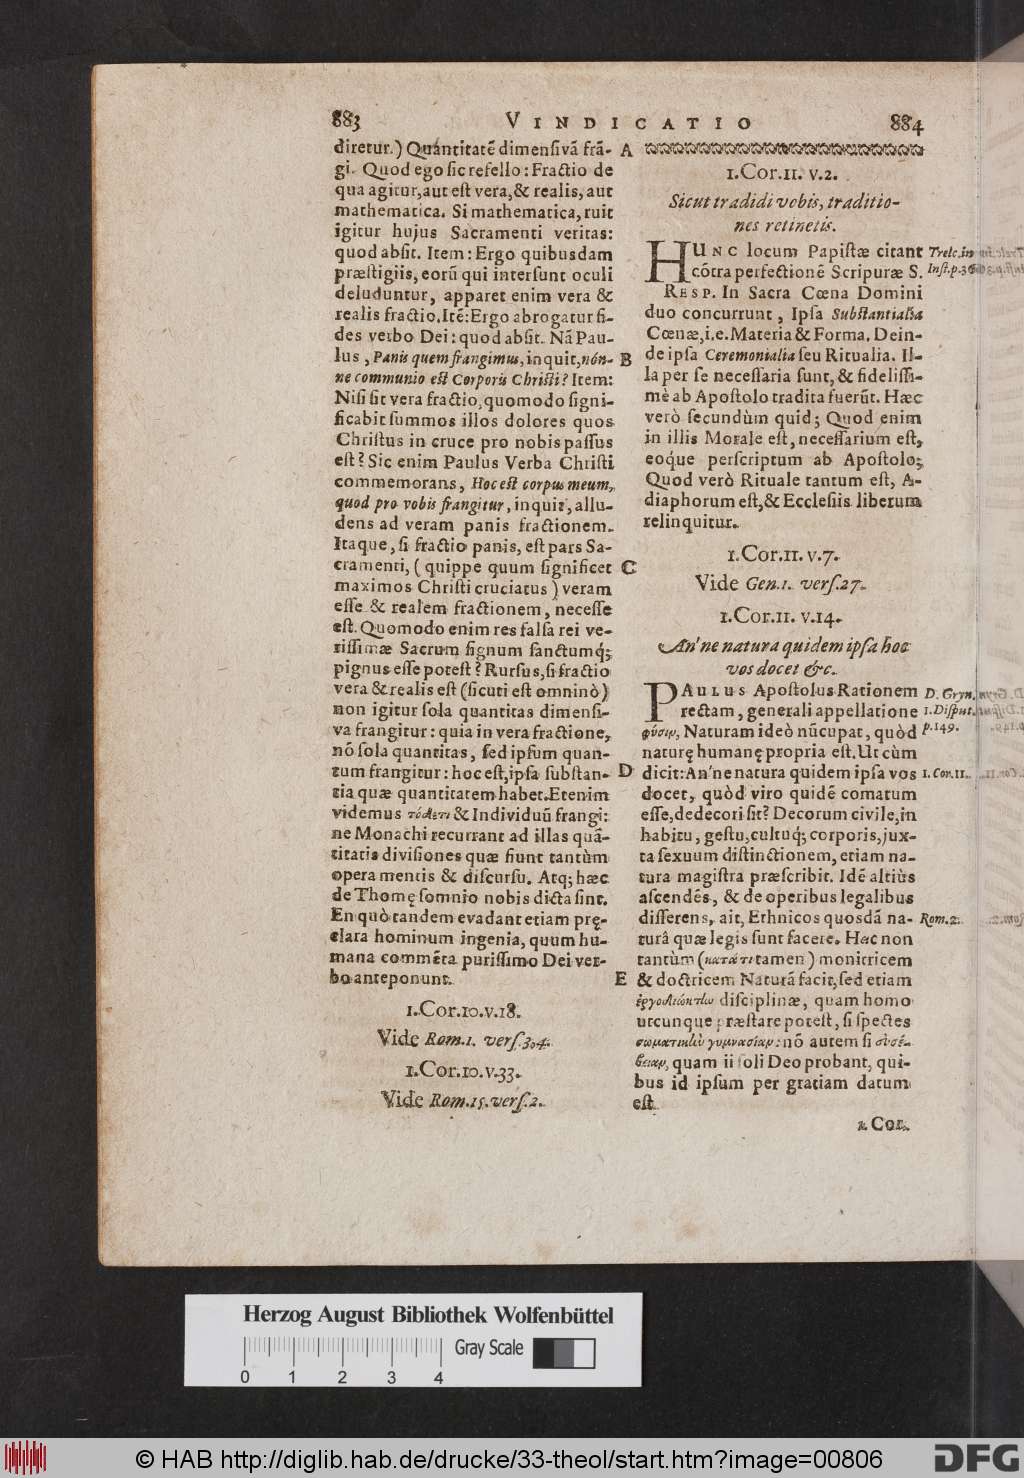 883
VINDICATIO
884
diretur.) Quántitatē dimensivā frā-
gi. Quod ego sic refello: Fractio de
qua agitur, aut est vera, & realis, aut
mathematica. Si mathematica, ruit
igitur hujus Sacramenti veritas:
quod absit. Item: Ergo quibusdam
præstigiis, eorū qui intersunt oculi
deluduntur, apparet enim vera &
realis fractio. Itē: Ergo abrogatur fi-
des verbo Dei: quod absit. Nā Pau-
lus, Panis quem frangimus, inquit, nón-
ne communio est Corporis Christi? Item:
Nisi sit vera fractio, quomodo signi-
ficabit summos illos dolores quos
Christus in cruce pro nobis passus
est? Sic enim Paulus Verba Christi
commemorans, Hoc est corpus meum,
quod pro vobis frangitur, inquit, allu-
dens ad veram panis fractionem.
Itaque, si fractio panis, est pars Sa-
cramenti, (quippe quum significet
maximos Christi cruciatus) veram
esse & realem fractionem, necesse
est. Quomodo enim res falsa rei ve-
rissimæ Sacrum signum sanctumq́;
pignus esse potest? Rursus, si fractio
vera & realis est (sicuti est omninò)
non igitur sola quantitas dimensi-
va frangitur: quia in vera fractione,
nō sola quantitas, sed ipsum quan-
tum frangitur: hoc est, ipsa substan-
tia quæ quantitatem habet. Etenim
videmus τόδετι & Individuū frangi:
ne Monachi recurrant ad illas quā-
titatis divisiones quæ fiunt tantùm
opera mentis & discursu. Atq; hæc
de Thomę somnio nobis dicta sint.
En quò tandem evadant etiam pręę-
clara hominum ingenia, quum hu-
mana commēta purissimo Dei ver-
bo anteponunt.
1. Cor. 10. v. 18.
Vide Rom. 1. vers. 304.
1. Cor. 10. v. 33.
Vide Rom. 15. vers. 2.
A
B
C
D
E
1. Cor. 11. v. 2.
Sicut tradidi vobis, traditio-
nes retinetis.
HUNC locum Papistæ citant
cōtra perfectionē Scripuræ S.
Trelc. in
Inst. p. 36
RESP. In Sacra Cœna Domini
duo concurrunt, Ipsa Substantialia
Cœnæ, i.e. Materia & Forma. Dein-
de ipsa Ceremonialia seu Ritualia. Il-
la per se necessaria sunt, & fidelissi-
mè ab Apostolo tradita fuerūt. Hæc
verò secundùm quid; Quod enim
in illis Morale est, necessarium est,
eoque perscriptum ab Apostolo;
Quod verò Rituale tantum est, A-
diaphorum est, & Ecclesiis liberum
relinquitur.
1. Cor. 11. v. 7.
Vide Gen. 1. vers. 27.
1. Cor. 11. v. 14.
An' ne natura quidem ipsa hoc
vos docet &c.
PAULUS Apostolus Rationem
rectam, generali appellatione
φύσιν, Naturam ideò nūcupat, quòd
naturę humanę propria est. Ut cùm
dicit: An' ne natura quidem ipsa vos
docet, quòd viro quidē comatum
esse, dedecori sit? Decorum civile, in
habitu, gestu, cultuq́; corporis, jux-
ta sexuum distinctionem, etiam na-
tura magistra præscribit. Idē altiùs
ascendēs, & de operibus legalibus
disserens, ait, Ethnicos quosdā na-
turâ quæ legis sunt facere. Hæc non
tantùm (κατά τι tamen) monitricem
& doctricem Naturā facit, sed etiam
ἐργοδιώκτιω disciplinæ, quam homo
utcunque præstare potest, si spectes
σωματικὴν γυμνασίαν: nō autem si εὐσέ-
βειαν, quam ii soli Deo probant, qui-
bus id ipsum per gratiam datum
est.
D. Gryn.
1. Disput.
p. 149.
1. Cor. 11.
Rom. 2.
1. Cor.
Herzog August Bibliothek Wolfenbüttel
0 1 2 3 4
Gray Scale
© HAB http://diglib.hab.de/drucke/33-theol/start.htm?image=00806
DFG